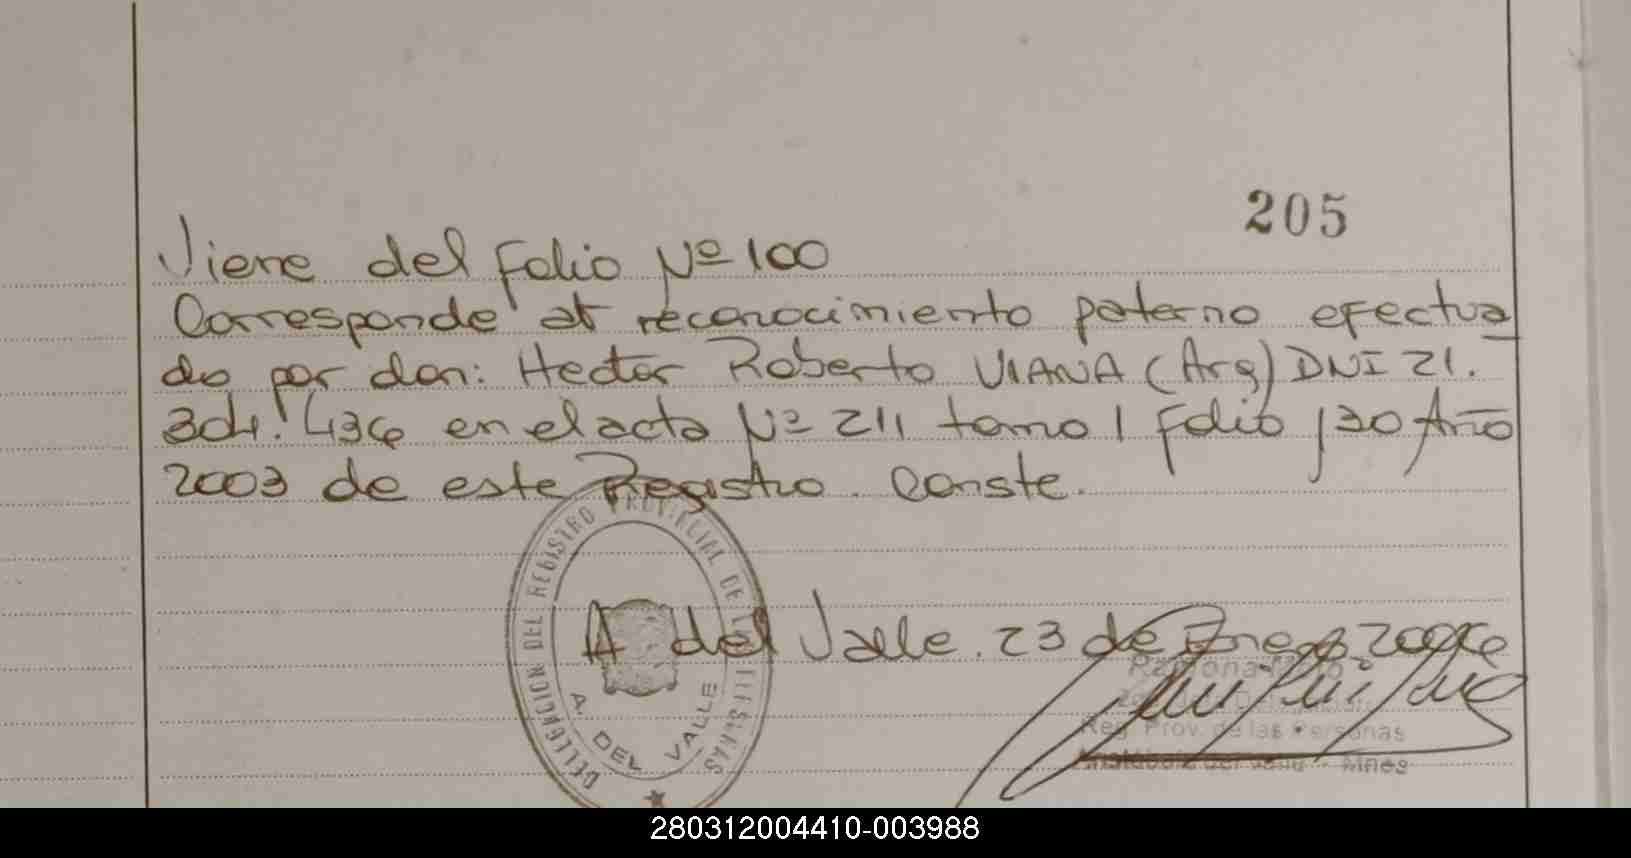 205
Viene del Folio Nº 100
Corresponde al reconocimiento paterno efectua
do por don: Hector Roberto VIANA (Arg) DNI 21.
304.436 en el acta Nº 211 tomo 1 Folio 130 Año
2003 de este Registro. Conste.
DELEGACION DEL REGISTRO PROVINCIAL DE LAS PERSONAS
A. DEL VALLE
A del Valle. 23 de Enero
Ramona
Reg. Prov. de las Personas
Aristóbulo del Valle - Mnes
280312004410-003988